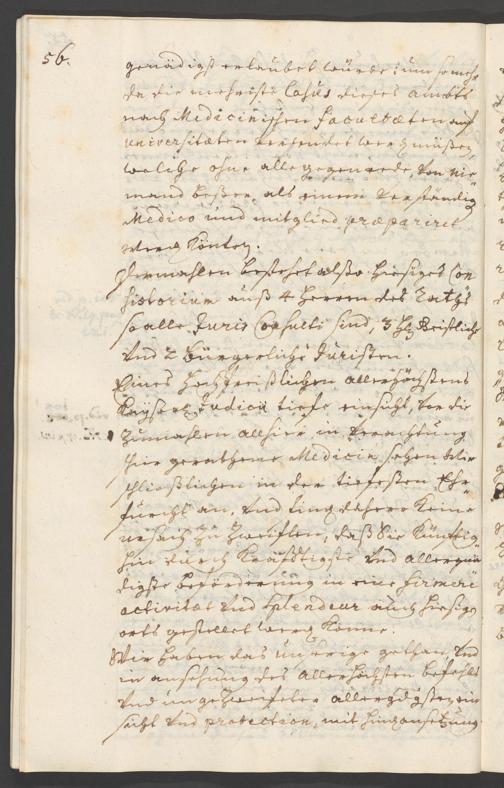 56.
gnädigst erlaubet würde: um so mehr
da die mehriste Casus dieses ambts
nach Medicinischen Facultæten auf
universitäten versendet werden müßen,
welche ohne alle gegenrede von nie
mand beßer, als einem verständig
Medico und mitglied præpariret
werden könten.
Hermahlen bestehet also hiesiges Con
sistorium auß 4 Herren des Raths
so alle Juris Consulti sind, 3 Geistliche
und 2 bürgerliche Juristen.
Eines Hochpreißlichen allerhöchstens
Kayserl. Judicii tiefe einsicht, vor die
zumahlen allhier in Verachtung
hin gerathene Medicin sehen wir
schließlichen in der tiefesten Ehr
furcht an, und daher keine
ursach zu zweiflen, daß Sie künftig
hin durch kräfftigste und allergnä
digste beförderung in eine
activität und Splendeur auch hiesigs
orts gestellet werden könne.
Wir haben das unsrige gethan, und
in ansehung des allerhöchsten befehls
und ungezweifelter allergdgsten ein
sicht und protection, mit hintansetzung